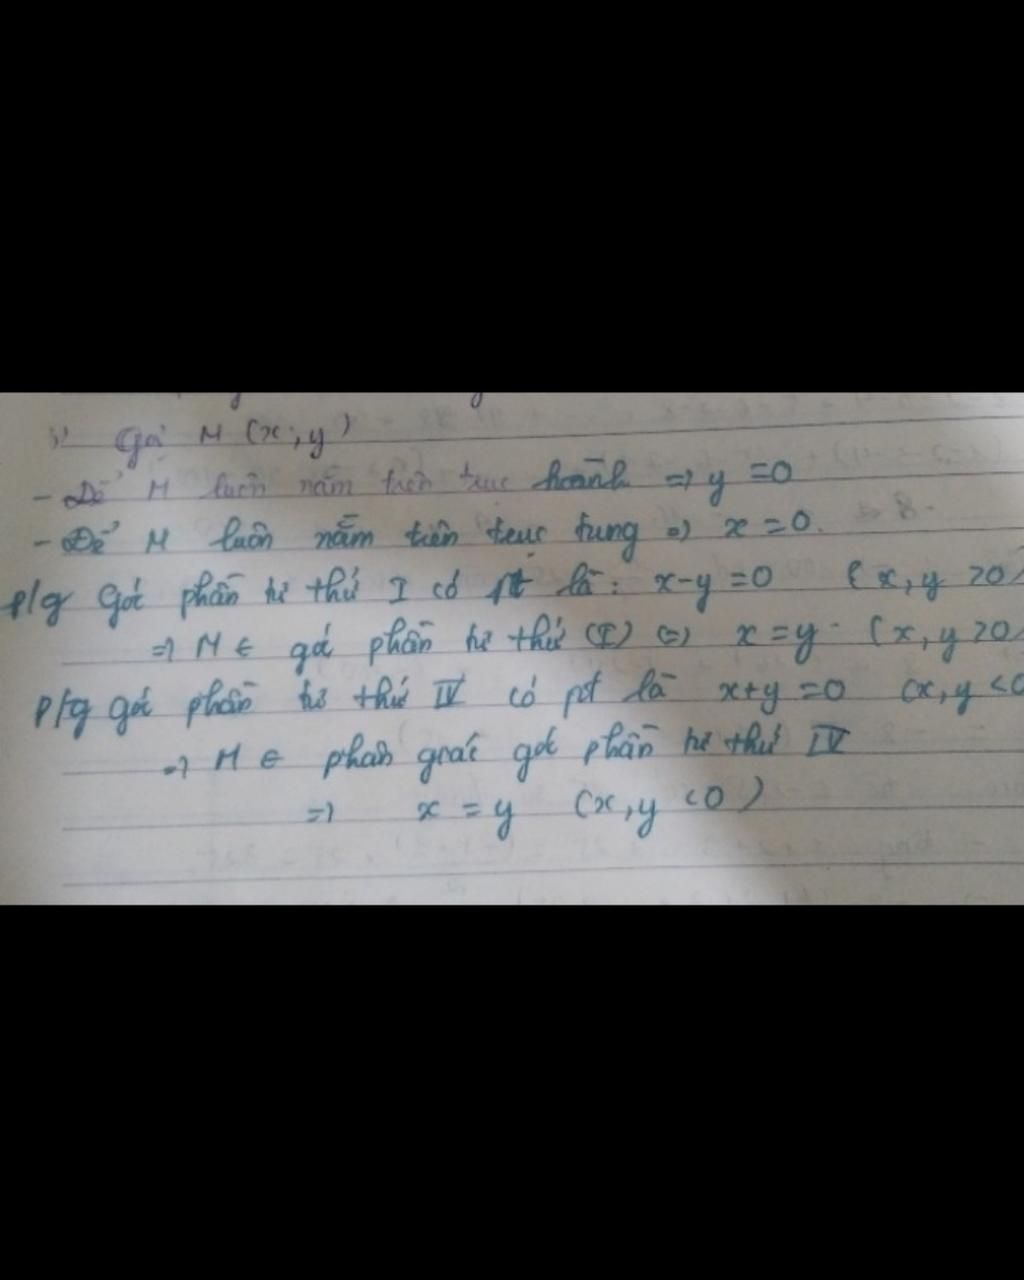 Gọi M (x; y)
- Để M luôn nằm trên trục hoành => y = 0
- Để M luôn nằm trên trục tung => x = 0.
p/g góc phần tư thứ I có pt là: x-y = 0 (x, y > 0)
=> M ∈ góc phần tư thứ (I) (=) x = y (x, y > 0)
p/g góc phần tư thứ IV có pt là x+y = 0 (x, y < 0
=> M ∈ phân giác góc phần tư thứ IV
=> x = y (x, y < 0)